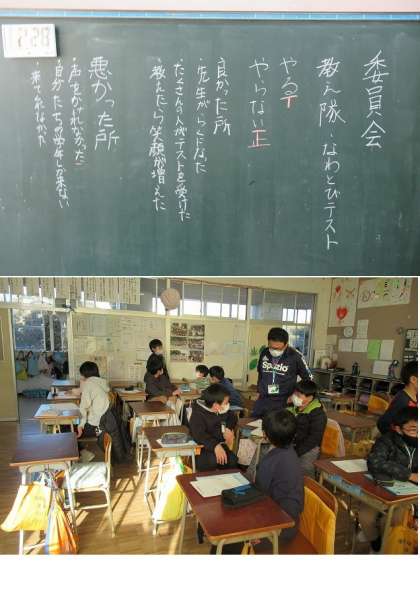 委員会
教え隊・なわとびテスト
やる T
やらない 正
良かった所
・先生がらくになった
・たくさんの人がテストを受けた
・教えたら笑顔が増えた
悪かった所
・声をかけれなかった
・自分たちの学年しか来ない
・来てくれなかった
12:28
Spazio